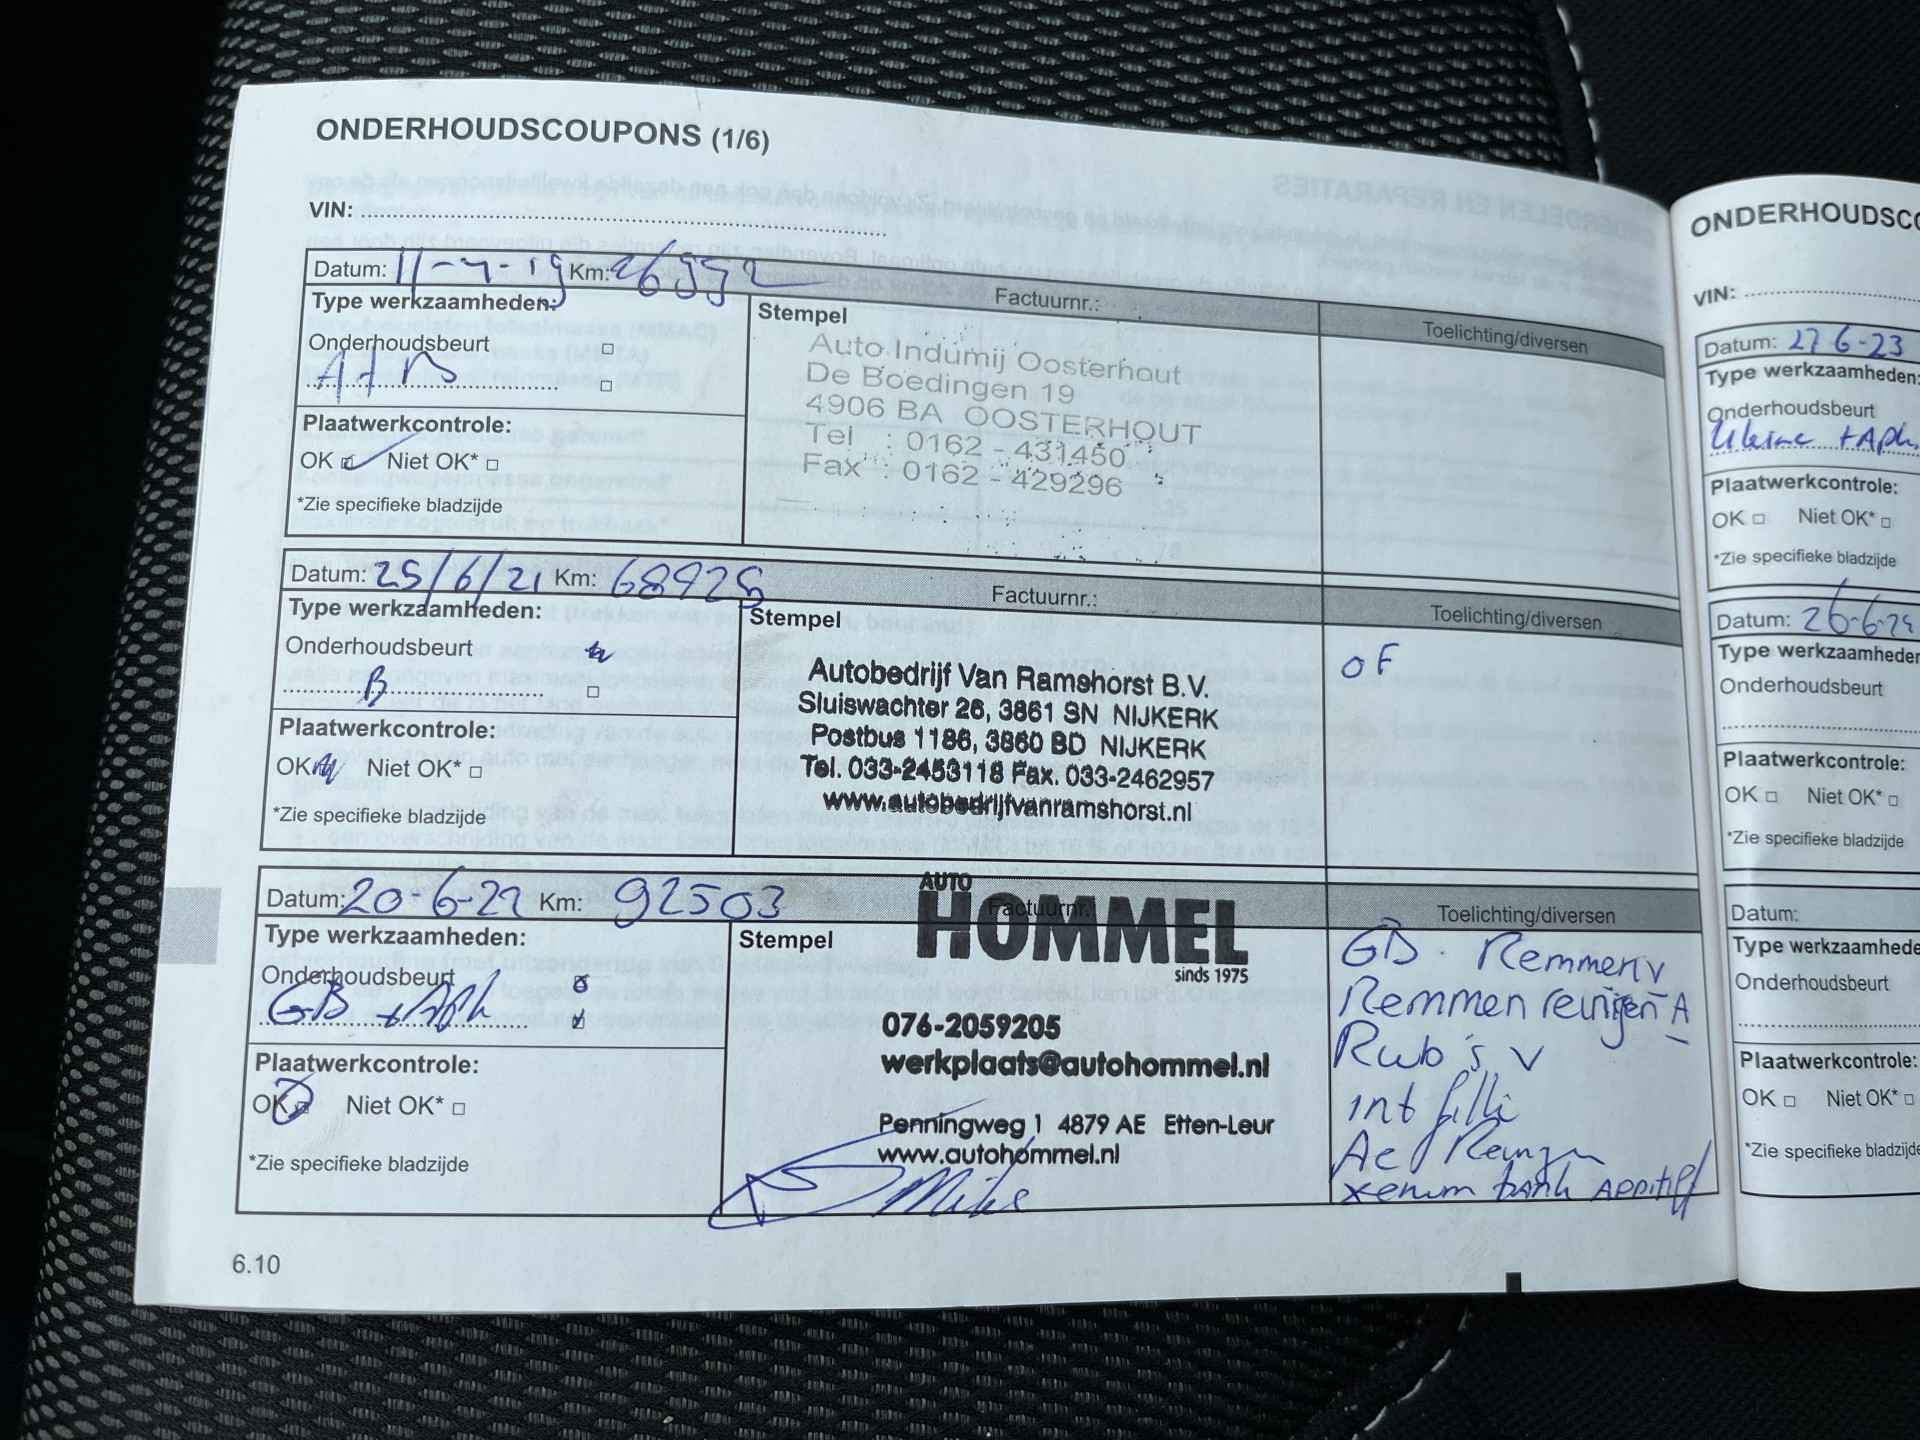 ONDERHOUDSCOUPONS (1/6)
VIN:
Datum: 11-4-19 Km:
Factuurnr.:
Toelichting/diversen
Type werkzaamheden:
Onderhoudsbeurt
A + B
Plaatwerkcontrole:
OK Niet OK*
*Zie specifieke bladzijde
Stempel
Auto Indumij Oosterhout
De Boedingen 19
4906 BA OOSTERHOUT
Tel : 0162 - 431450
Fax : 0162 - 429296
Datum: 25/6/21 Km: 68925
Factuurnr.:
Toelichting/diversen
Type werkzaamheden:
Onderhoudsbeurt
B
Plaatwerkcontrole:
OK Niet OK*
*Zie specifieke bladzijde
Stempel
Autobedrijf Van Ramshorst B.V.
Sluiswachter 26, 3861 SN NIJKERK
Postbus 1186, 3860 BD NIJKERK
Tel. 033-2453118 Fax. 033-2462957
www.autobedrijfvanramshorst.nl
OF
Datum: 20-6-22 Km: 92503
Factuurnr.
Toelichting/diversen
Type werkzaamheden:
Onderhoudsbeurt
GB + Aph
Plaatwerkcontrole:
OK Niet OK*
*Zie specifieke bladzijde
Stempel
AUTO
HOMMEL
sinds 1975
076-2059205
werkplaats@autohommel.nl
Penningweg 1 4879 AE Etten-Leur
www.autohommel.nl
Mike
GB. Remmen v
Remmen reinigen A
Rwb's v
int filli
Xenum tank additif
6.10
ONDERHOUDSCO
VIN:
Datum: 27 6-23
Type werkzaamheden:
Onderhoudsbeurt
Kleine + Aph.
Plaatwerkcontrole:
OK Niet OK*
*Zie specifieke bladzijde
Datum: 26-6-24
Type werkzaamheden
Onderhoudsbeurt
Plaatwerkcontrole:
OK Niet OK*
*Zie specifieke bladzijde
Datum:
Type werkzaamhede
Onderhoudsbeurt
Plaatwerkcontrole:
OK Niet OK*
*Zie specifieke bladzijde